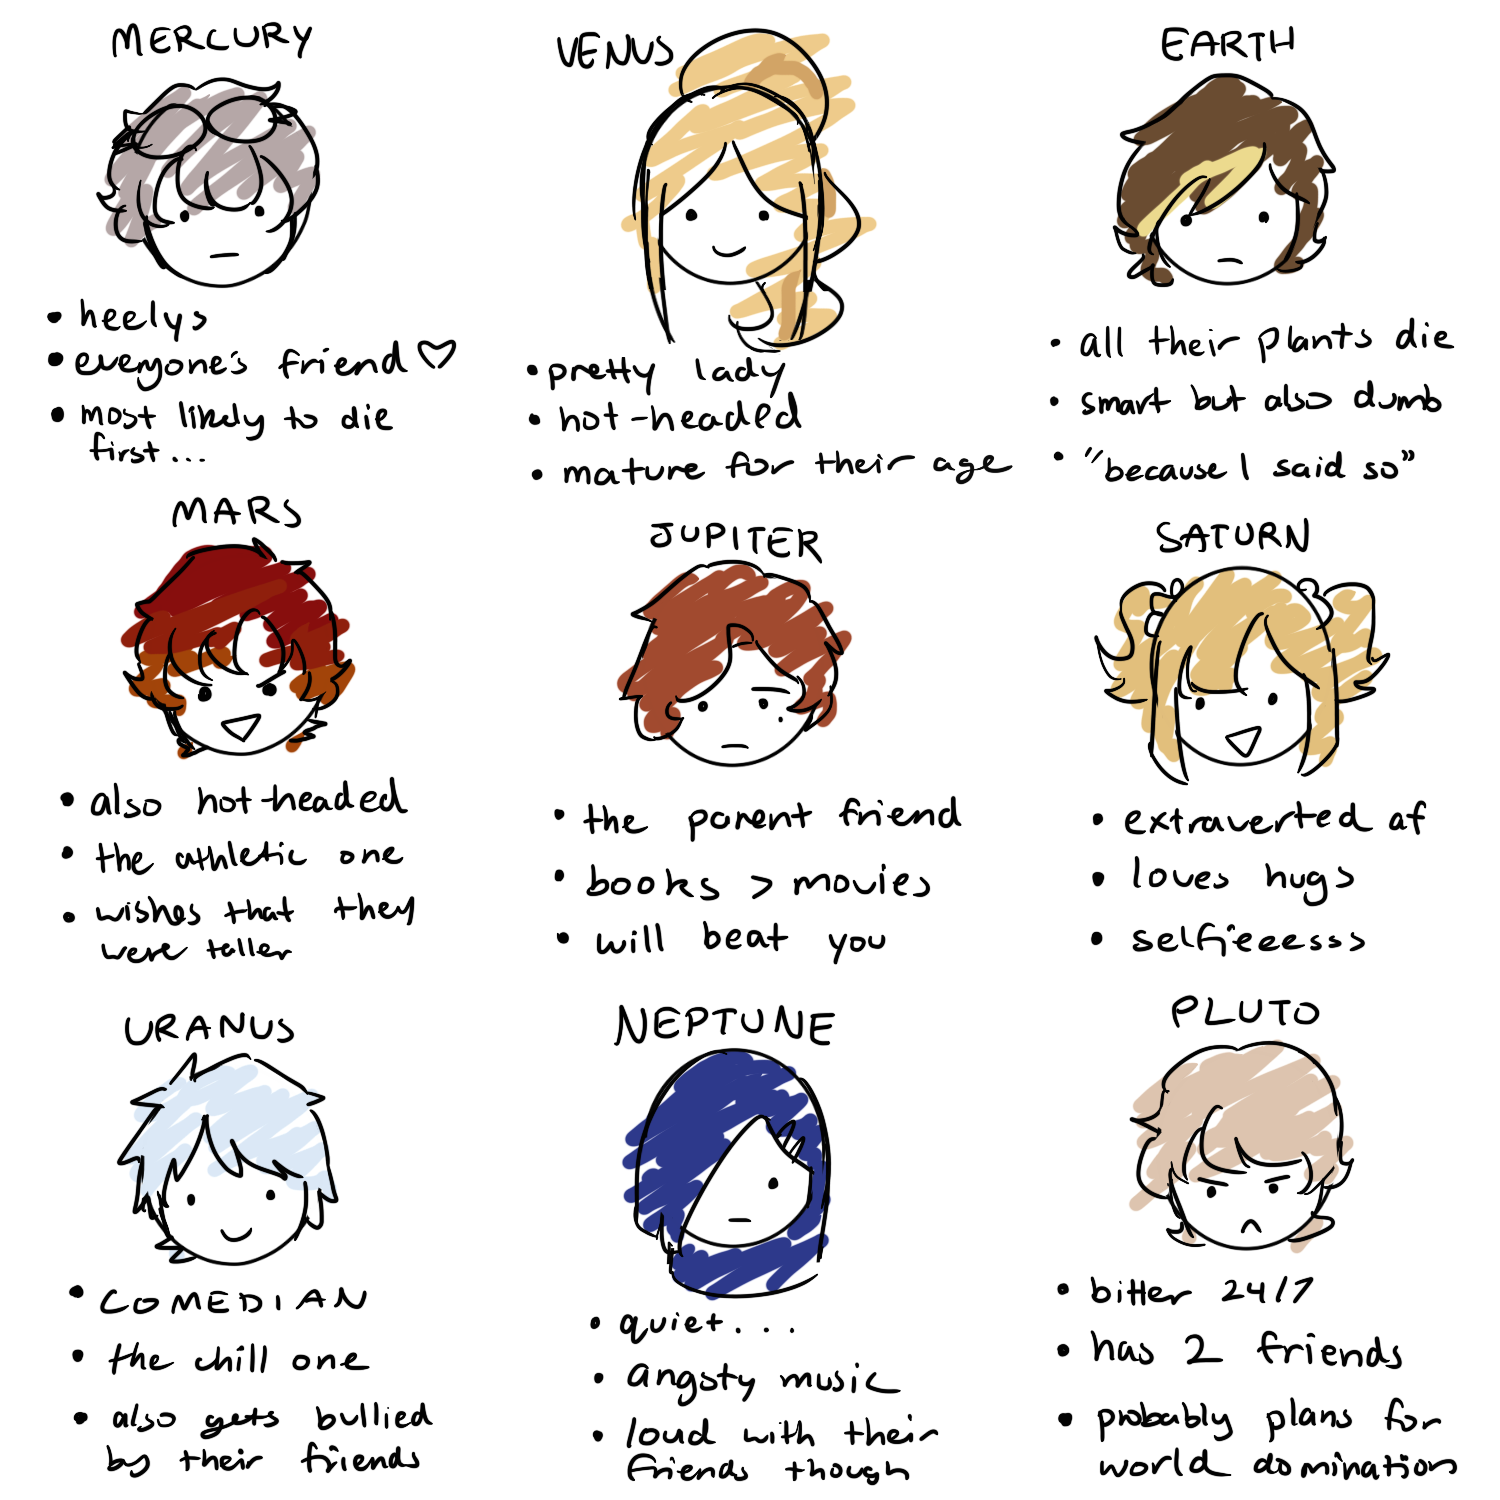 MERCURY
• heelys
• everyone's friend ♡
• most likely to die
first...
VENUS
• pretty lady
• hot-headed
• mature for their age
EARTH
• all their plants die
• smart but also dumb
• "because I said so"
MARS
• also hot-headed
• the athletic one
• wishes that they
were taller
JUPITER
• the parent friend
• books > movies
• will beat you
SATURN
• extraverted af
• loves hugs
• selfieeesss
URANUS
• COMEDIAN
• the chill one
• also gets bullied
by their friends
NEPTUNE
• quiet...
• angsty music
• loud with their
friends though
PLUTO
• bitter 24/7
• has 2 friends
• probably plans for
world domination